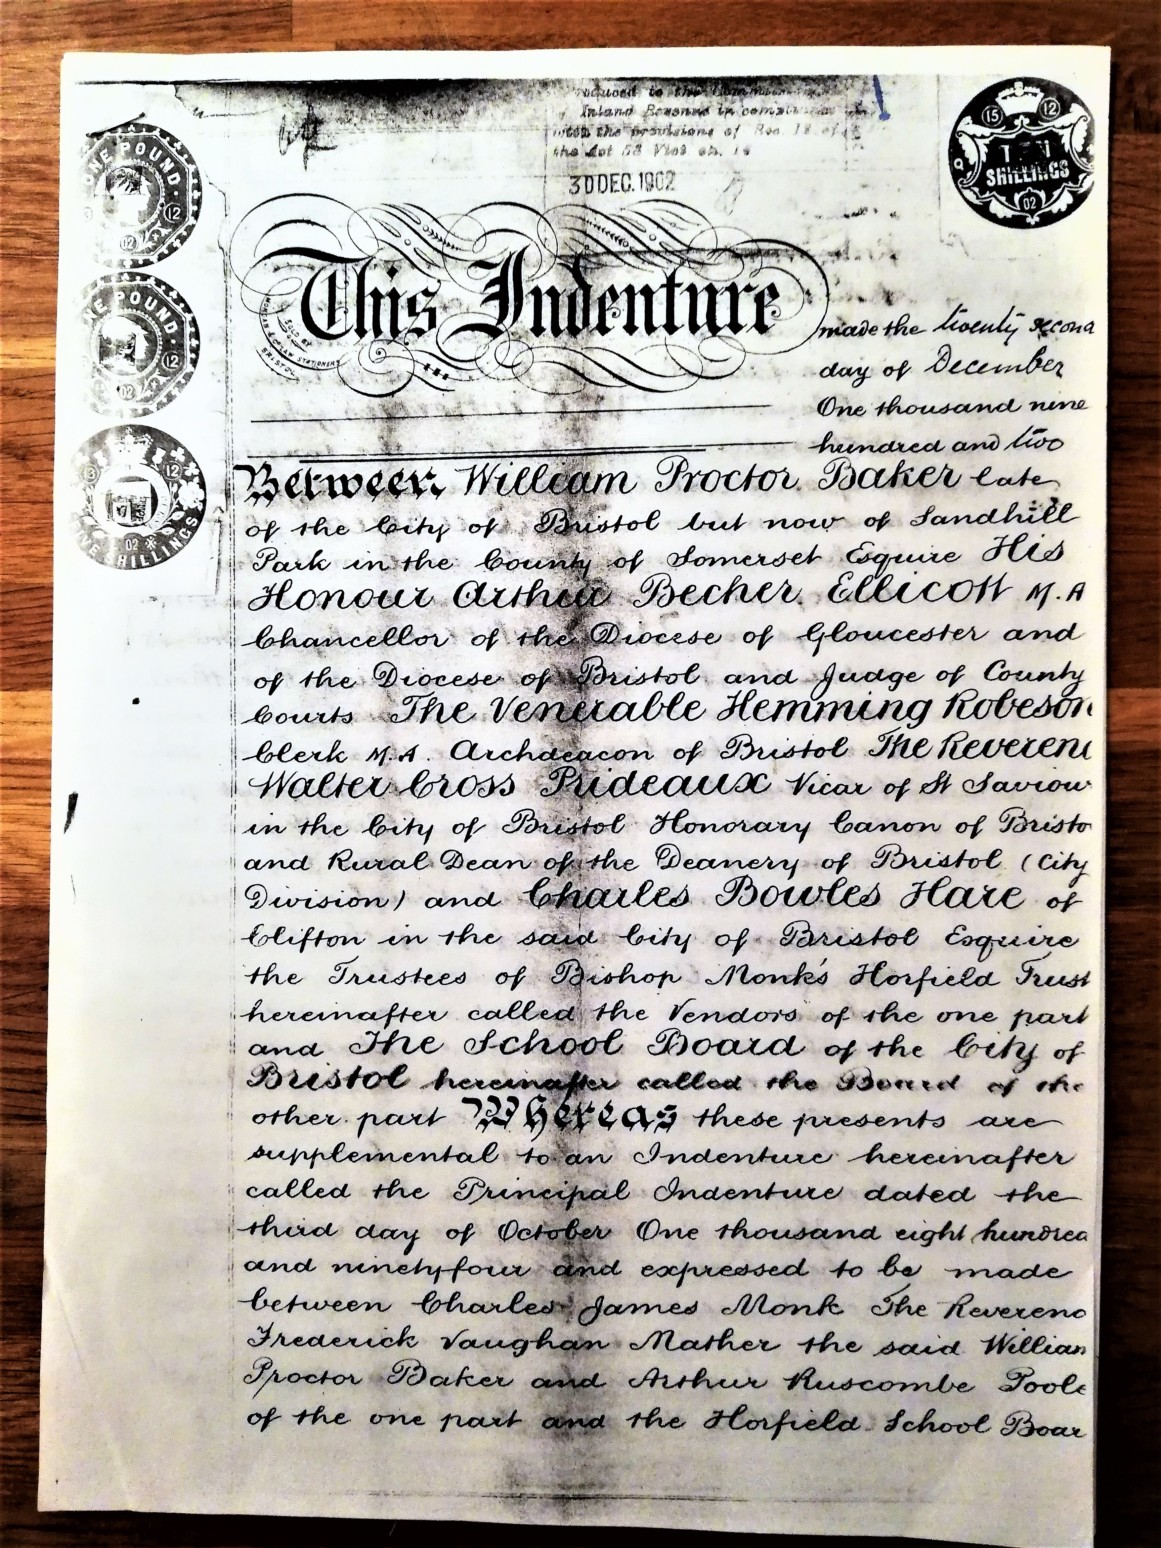 Inland Revenue in
with the provisions of Sec. 12 of
the Act 58 Vict ch. 16
30 DEC. 1902
ONE POUND
12
02
15 12
TEN
SHILLINGS
02
E POUND
12
02
12
02
SHILLINGS
This Indenture
SOLD BY
LAW STATIONERS
BRISTOL
made the twenty second
day of December
One thousand nine
hundred and two
Between William Proctor Baker late
of the City of Bristol but now of Sandhill
Park in the County of Somerset Esquire His
Honour Arthur Becher Ellicott M.A
Chancellor of the Diocese of Gloucester and
of the Diocese of Bristol and Judge of County
Courts The Venerable Hemming Robeson
Clerk M.A. Archdeacon of Bristol The Reveren
Walter Cross Prideaux Vicar of St Saviour
in the City of Bristol Honorary Canon of Bristo
and Rural Dean of the Deanery of Bristol (City
Division) and Charles Bowles Hare of
Clifton in the said City of Bristol Esquire
the Trustees of Bishop Monk's Horfield Trust
hereinafter called the Vendors of the one part
and The School Board of the City of
Bristol hereinafter called the Board of the
other part Whereas these presents are
supplemental to an Indenture hereinafter
called the Principal Indenture dated the
third day of October One thousand eight hundred
and ninety four and expressed to be made
between Charles James Monk The Reverend
Frederick Vaughan Mather the said William
Proctor Baker and Arthur Ruscombe Poole
of the one part and the Horfield School Boar